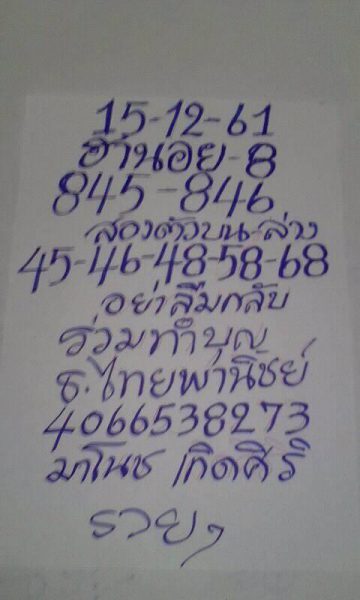 15-12-61
ฮานอย-8
845-846
สองตัวบน-ล่าง
45-46-48-58-68
อย่าลืมกลับ
ร่วมทำบุญ
ธ.ไทยพานิชย์
4066538273
มาโนช เกิดศิริ
รวยๆ